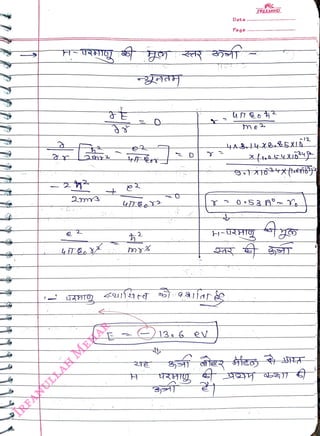 Date
Page
→ H-परमाणु की मूल स्तर ऊर्जा -
न्यूनतम
∂E/∂r = 0
∂/∂r [ħ²/2mr² - e²/4πε₀r] = 0
-2ħ²/2mr³ + e²/4πε₀r² = 0
e²/4πε₀r² = ħ²/mr³
r = 4πε₀ħ²/me²
r = 4×3.14×8.85×10⁻¹² ×(1.054×10⁻³⁴)²
r = 0.53 A° = r₀
↓
H-परमाणु की मूल
स्तर की ऊर्जा
:- परमाणु स्थायित्व को दर्शाता है
E = (-)13.6 eV
⇓
यह ऊर्जा बोहर मॉडल से प्राप्त
H परमाणु की प्रथम कक्षा की
ऊर्जा है।
IRFANULLAH MEHAR